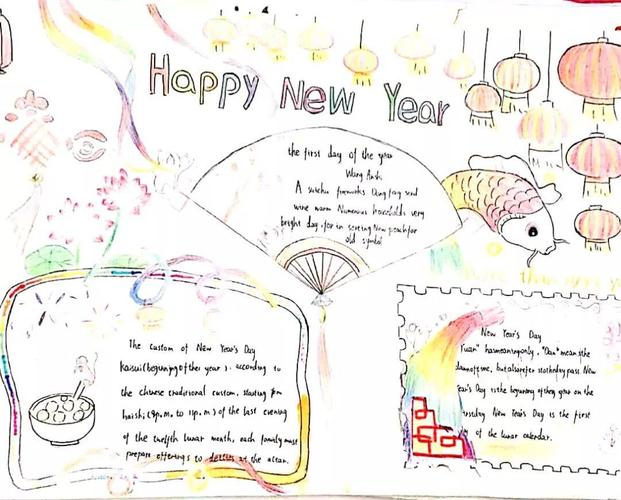 Happy New Year
the first day of the year
Wang Anshi
A suichu fireworks Dong feng send
wine warm Numerous households very
bright day, for in screing New peach for
old symbol
The custom of New Year's Day
kaisui (beginning of the year). according to
the chinese traditional custom, starting from
haishi (9p.m. to 11p.m.) of the last evening
of the twelfth lunar month, each family must
prepare offerings to deities at the altar.
New Year's Day
Yuan" has meaning only, "Dan" means the
of time, but also refer
Year's Day is the beginning of the year on the
New Year's Day is the first
of the lunar calendar.